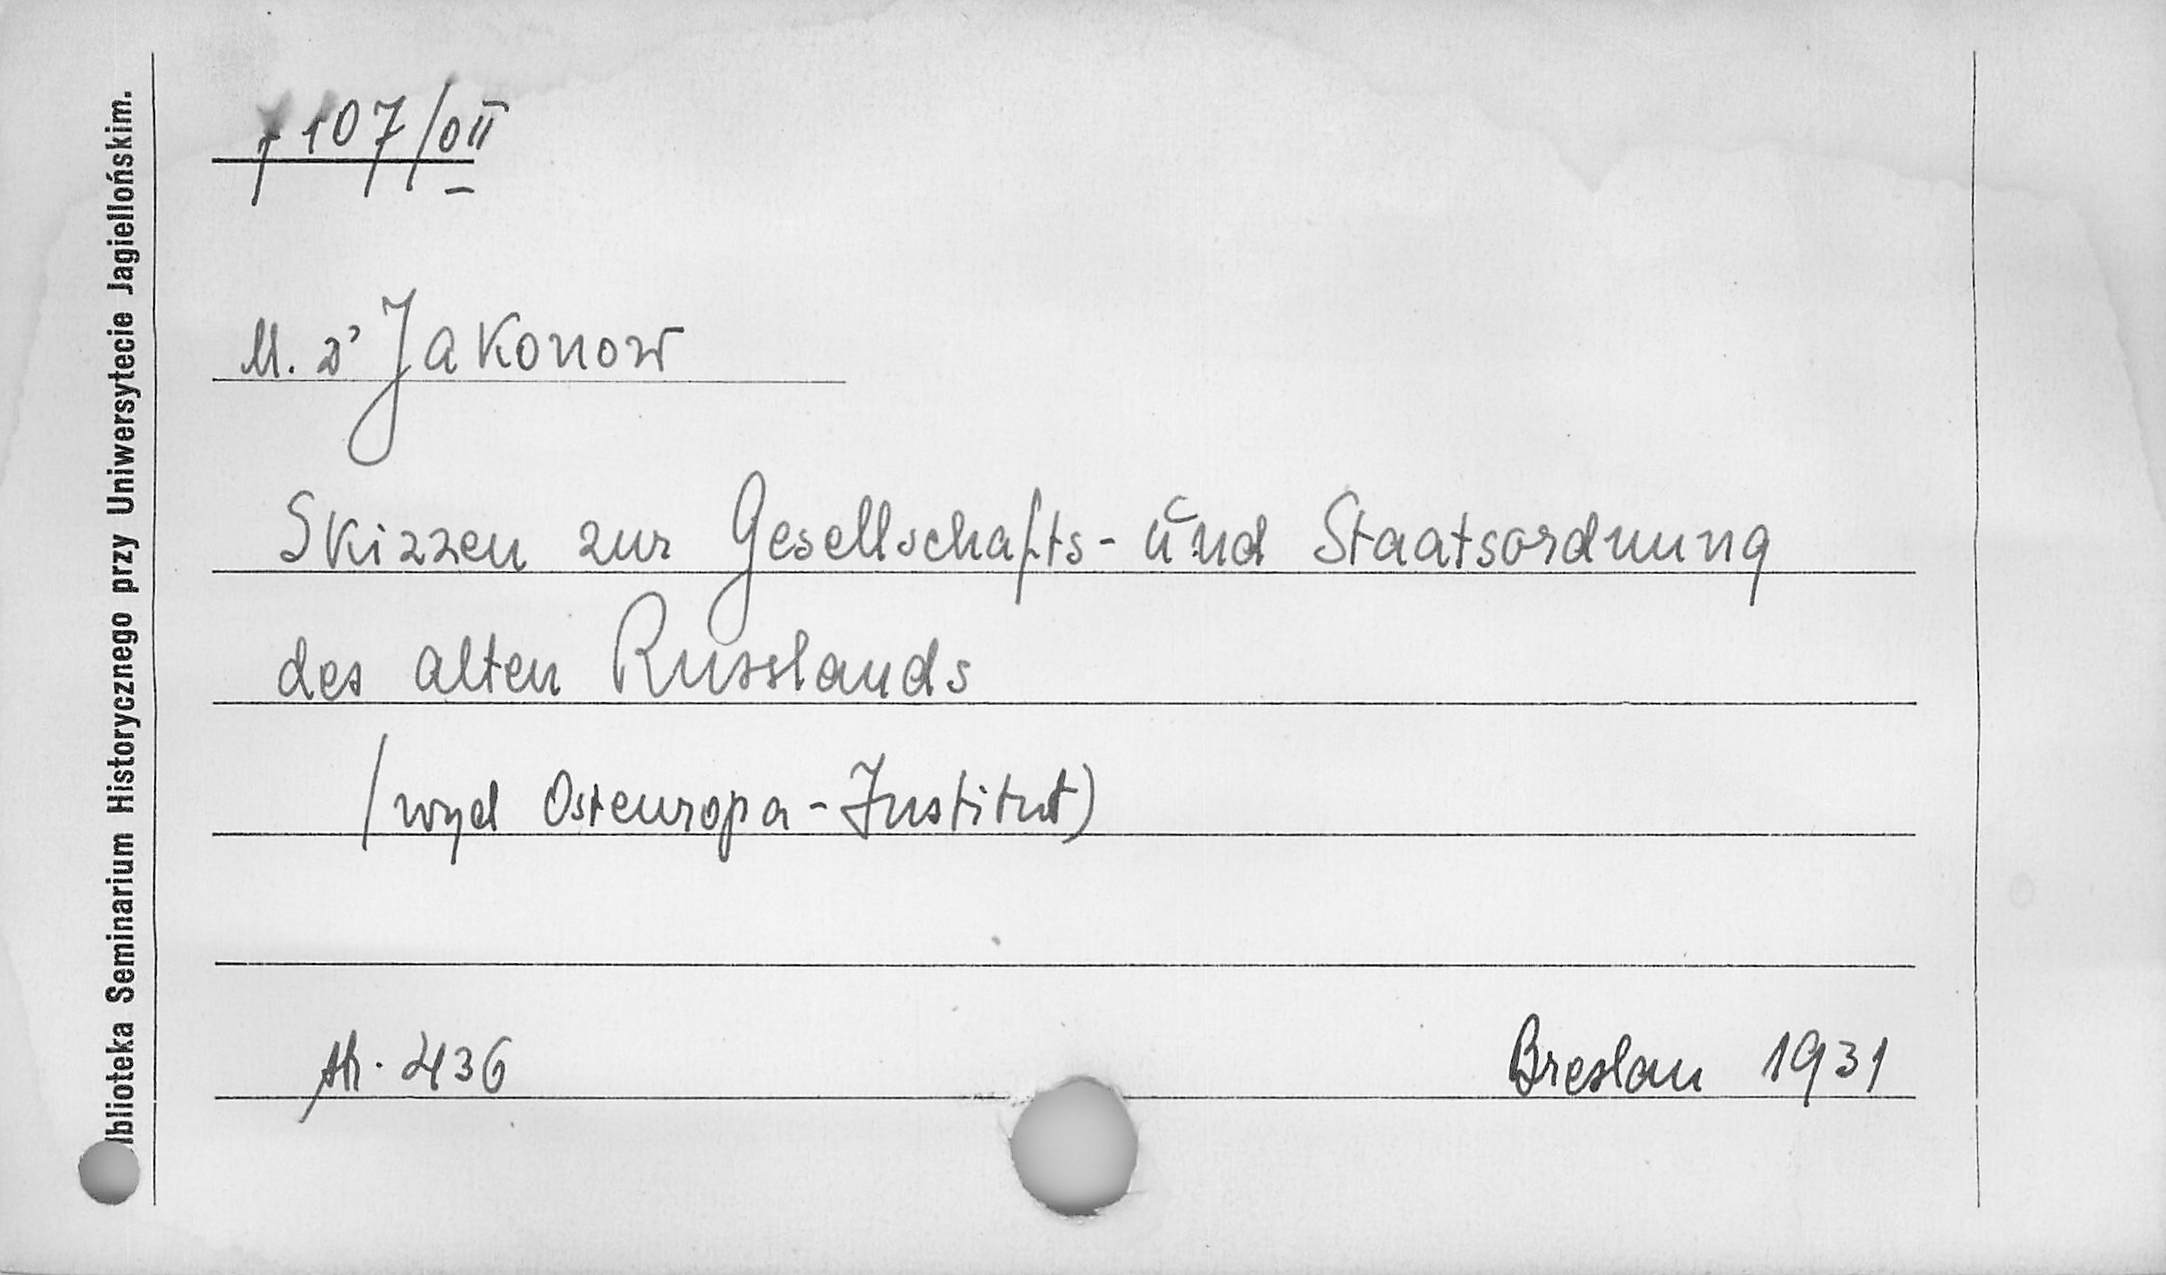 7107/oII
M. D'Jakonow
Skizzen zur Gesellschafts- und Staatsordnung
des alten Russlands
(wyd Osteuropa-Institut)
str. 436 Breslau 1931
Biblioteka Seminarium Historycznego przy Uniwersytecie Jagiellońskim.